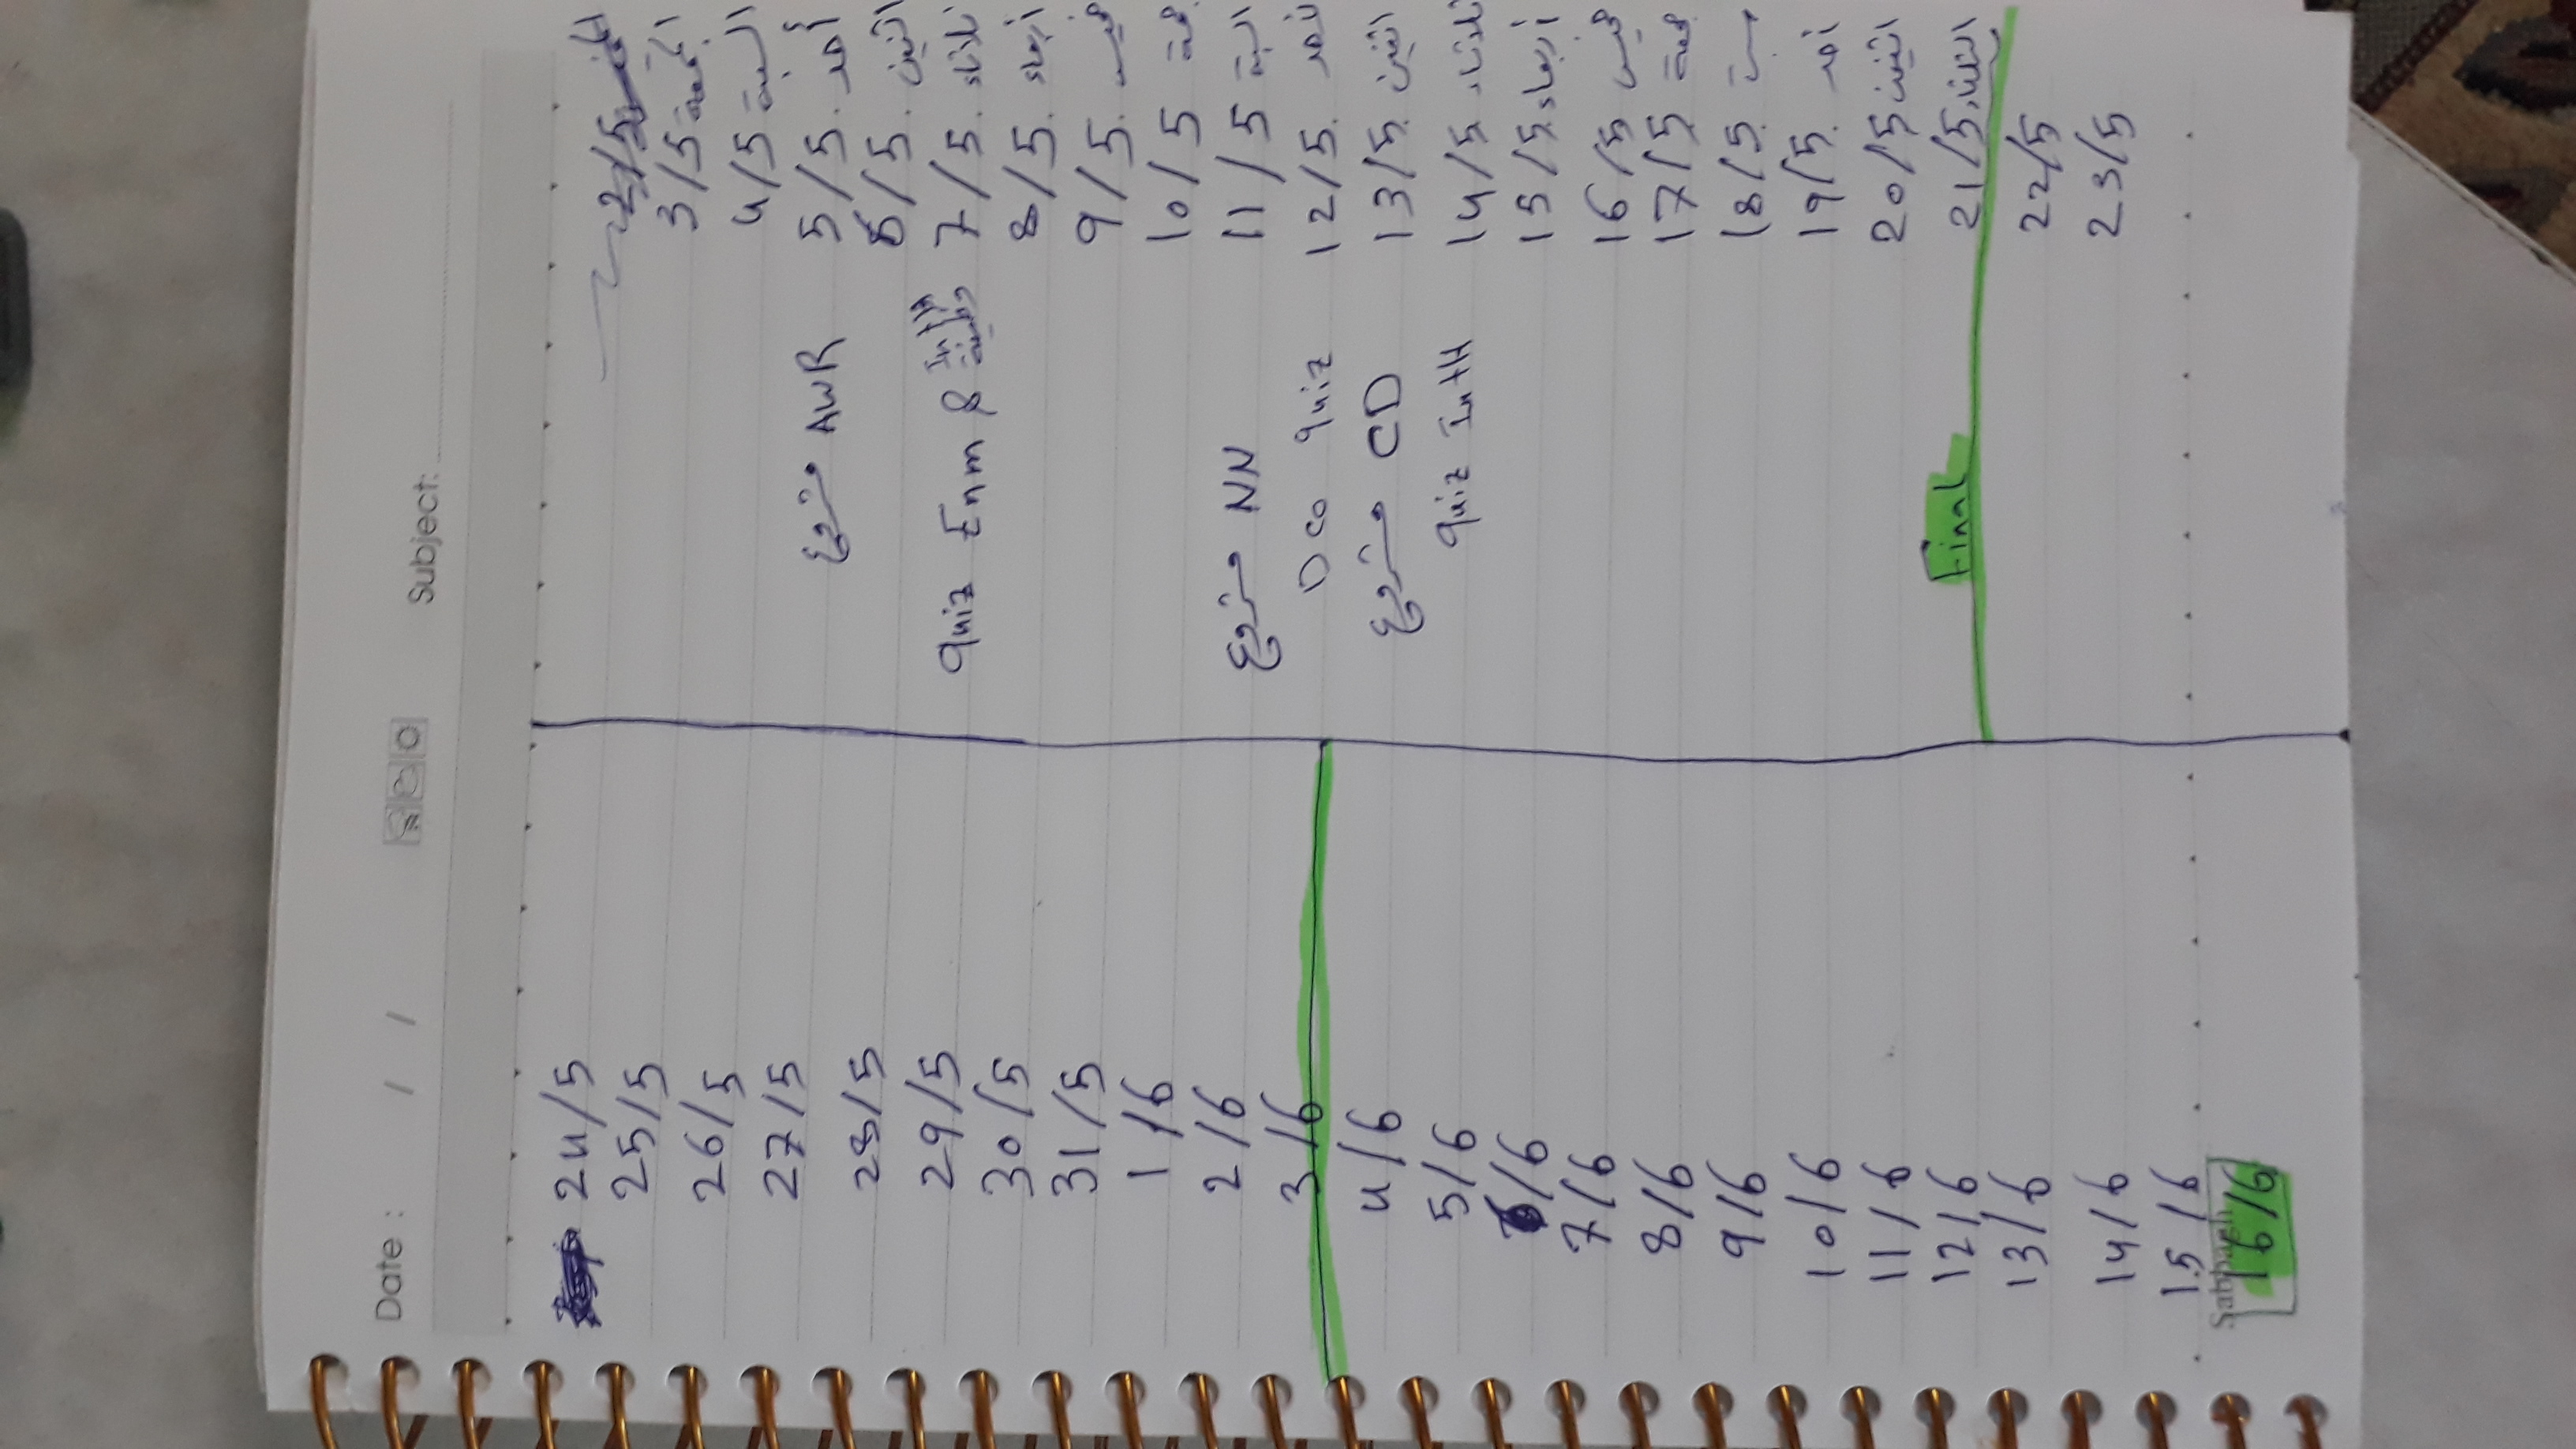 Date : / /
Subject:
2/5 الخميس
3/5 الجمعة
4/5 السبة
أحد 5/5. AWR مشروع
اثنين 6/5.
ثلاثاء 7/5. وظيفة IntH & Quiz Enm
أربعاء 8/5.
خميس 9/5.
جمعة 10/5
السبة 11/5 NN مشروع
لأحد 12/5. Dco Quiz
اثنين 13/5. CD مشروع
ثلاثاء 14/5. Quiz IntH
أربعاء 15/5.
خميس 16/5
جمعة 17/5
سبة 18/5.
أحد 19/5.
اثنين 20/5
الثلاثاء 21/5 Final
22/5
23/5
24/5
25/5
26/5
27/5
28/5
29/5
30/5
31/5
1/6
2/6
3/6
4/6
5/6
6/6
7/6
8/6
9/6
10/6
11/6
12/6
13/6
14/6
15/6
Sabbagh
16/6